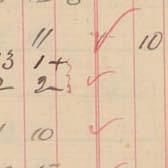 " 10
3 1+
2 2
10